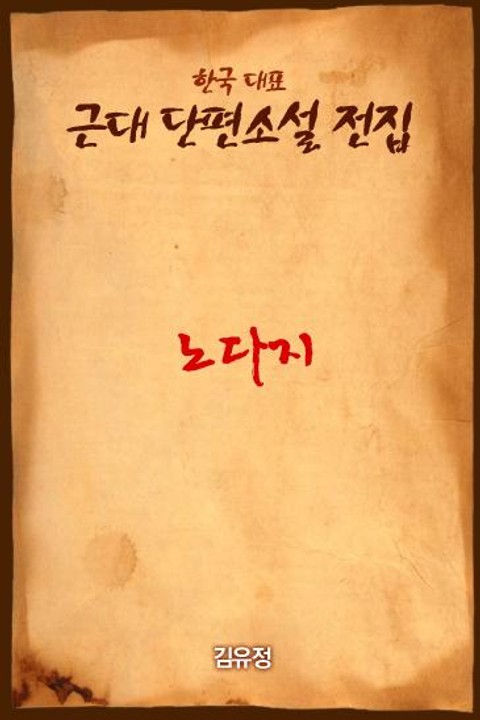 한국 대표
근대 단편소설 전집
노다지
김유정